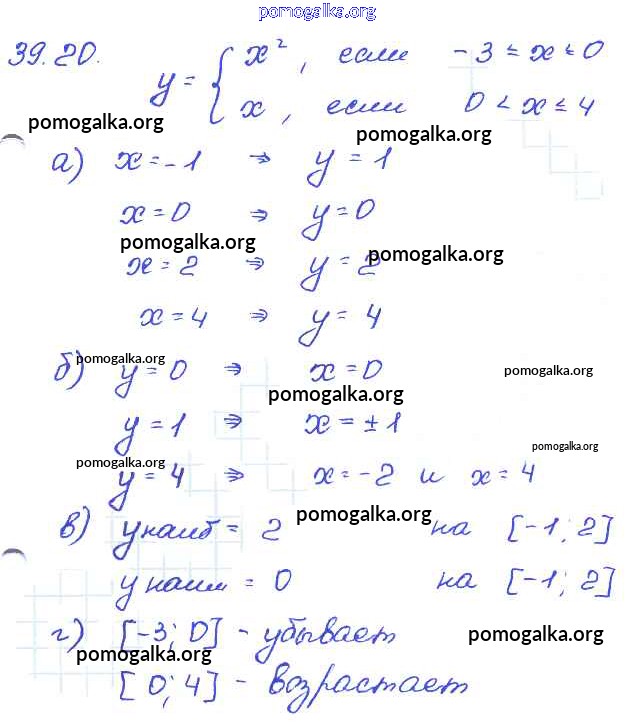 pomogalka.org
39.20.
y = { x², если -3 ≤ x ≤ 0
x, если 0 < x ≤ 4
pomogalka.org pomogalka.org
а) x = -1 ⇒ y = 1
x = 0 ⇒ y = 0
pomogalka.org pomogalka.org
x = 2 ⇒ y = 2
x = 4 ⇒ y = 4
pomogalka.org pomogalka.org
б) y = 0 ⇒ x = 0
pomogalka.org
y = 1 ⇒ x = ±1
pomogalka.org pomogalka.org
y = 4 ⇒ x = -2 и x = 4
pomogalka.org
в) y наиб = 2 на [-1; 2]
y наим = 0 на [-1; 2]
г) [-3; 0] - убывает
pomogalka.org pomogalka.org
[0; 4] - возрастает